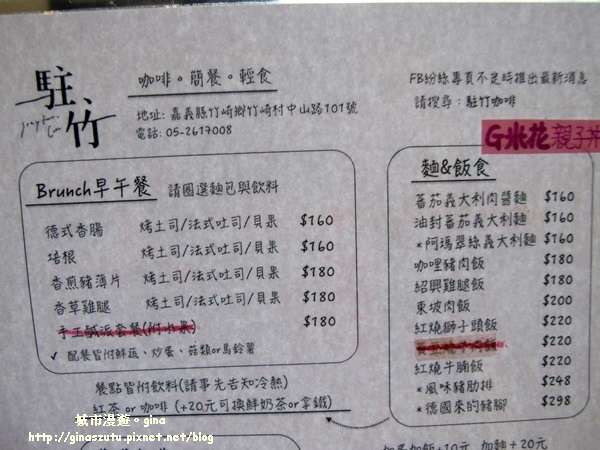 駐竹
咖啡。簡餐。輕食
地址: 嘉義縣竹崎鄉竹崎村中山路101號
電話: 05-2617008
FB紛絲專頁不定時推出最新消息
請搜尋:駐竹咖啡
G米花親子丼
Brunch早午餐 請圈選麵包與飲料
德式香腸 烤土司/法式吐司/貝果 $160
培根 烤土司/法式吐司/貝果 $160
香煎豬薄片 烤土司/法式吐司/貝果 $180
香草雞腿 烤土司/法式吐司/貝果 $180
手工鹹派套餐(附水果) $180
✓ 配餐皆附鮮蔬、炒蛋、菇類or馬鈴薯
餐點皆附飲料(請事先告知冷熱)
紅茶 or 咖啡 (+20元可換鮮奶茶or拿鐵)
麵&飯食
蕃茄義大利肉醬麵 $160
油封蕃茄義大利麵 $160
*阿瑪翠絲義大利麵 $160
咖哩豬肉飯 $180
紹興雞腿飯 $180
東坡肉飯 $200
紅燒獅子頭飯 $220
$220
紅燒牛腩飯 $220
*風味豬肋排 $248
*德國來的豬腳 $298
加麵+20元
城市漫遊。gina
http://ginaszutu.pixnet.net/blog